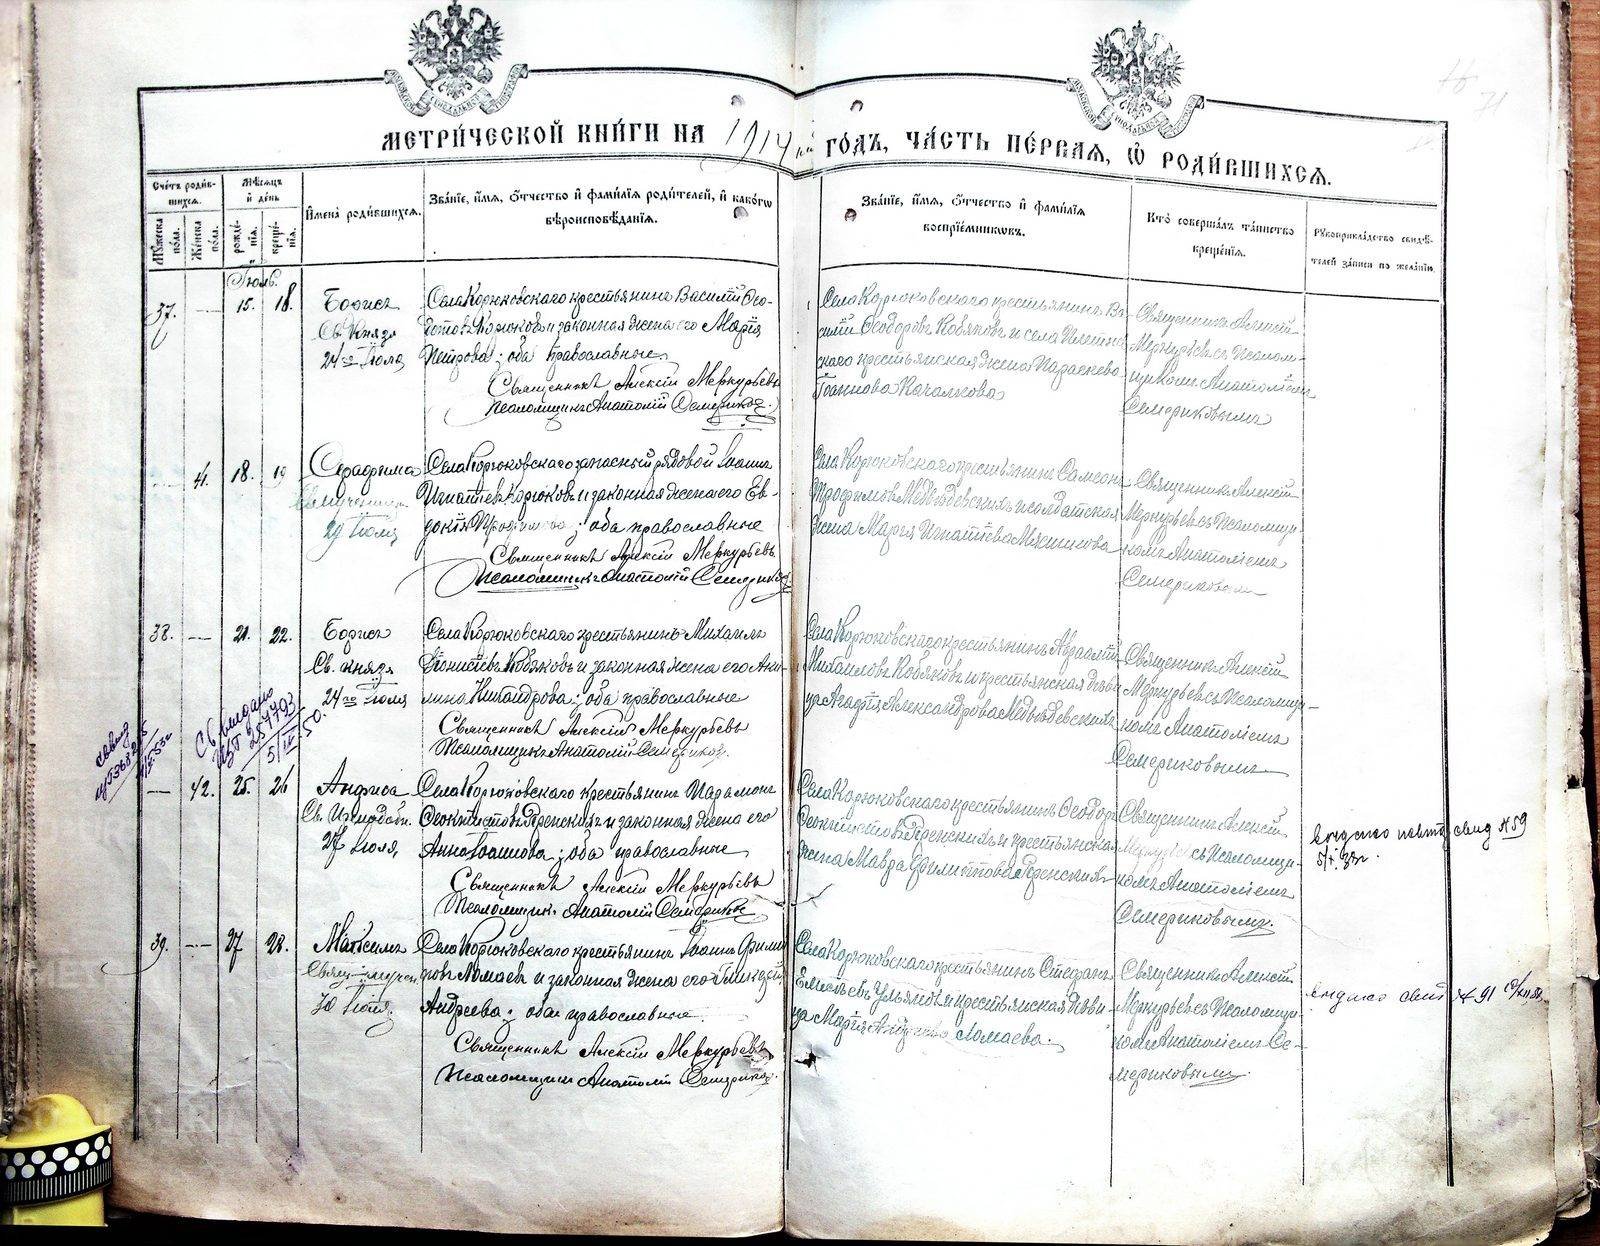 МЕТРИ́ЧЕСКОЙ КНИ́ГИ НА 1914 ГОДЪ, ЧА́СТЬ ПЕ́РВАЯ, Ѡ РОДИ́ВШИХСЯ.
Сче́тъ роди́в-
шихся.
Му́жеска по́ла.
Же́нска по́ла.
Мѣ́сяцъ и де́нь
рожде́-
нія.
креще́-
нія.
Имена̀ роди́вшихся.
Зва́ніе, и́мя, о́тчество и фами́лія роди́телей, и како́гѡ
вѣроисповѣ́данія.
Зва́ніе, и́мя, о́тчество и фами́лія
воспріе́мниковъ.
Кто̀ соверша́лъ та́инство
креще́нія.
Рукоприкла́дство свидѣ́-
телей за́писи по жела́нію.
Іюль.
37. — 15. 18.
Борисъ
Св. Князя
24го Іюля
Села Корюковскаго крестьянинъ Василій Ѳео-
дотовъ Корюковъ и законная жена его Марія
Петрова; оба православные.
Священникъ Алексій Меркурьевъ
Псаломщикъ Анатолій Семериковъ.
Села Корюковскаго крестьянинъ Ва-
силій Ѳеодоровъ Кобяковъ и села
скаго крестьянская жена Параскева
Іоаннова Качалкова
Священникъ Алексій
Меркурьевъ съ Псалом-
щикомъ Анатоліемъ
Семериковымъ
41. 18. 19
Серафима
29 Іюля
Села Корюковскаго запасный рядовой Іоаннъ
Игнатіевъ Корюковъ и законная жена его Ев-
докія Трофимова; оба православные
Священникъ Алексій Меркурьевъ
Псаломщикъ Анатолій Семериковъ
Села Корюковскаго крестьянинъ Самсонъ
Трофимовъ Медвѣдевскихъ и солдатская
жена Марія Игнатіева
Священникъ Алексій
Меркурьевъ съ Псаломщи-
комъ Анатоліемъ
Семериковым
38. — 21. 22.
Борисъ
Св. князя
24го Іюля
Села Корюковскаго крестьянинъ Михаилъ
Кобяковъ и законная жена его Ани-
Никандрова; оба православные
Священникъ Алексій Меркурьевъ
Псаломщикъ Анатолій Семериковъ.
Села Корюковскаго крестьянинъ Авраамій
Михаиловъ Кобяковъ и крестьянская дѣви-
ца Агафія Александрова Медвѣдевскихъ
Священникъ Алексій
Меркурьевъ съ Псаломщи-
комъ Анатоліемъ
Семериковымъ
Св. выдано
257793
50.
— 42. 25. 26
Анфиса
27 Іюля,
Села Корюковскаго крестьянинъ Парамонъ
Ѳеоктистовъ и законная жена его
Анна Іоаннова; оба православные
Священникъ Алексій Меркурьевъ
Псаломщикъ Анатолій Семериковъ
Села Корюковскаго крестьянинъ Ѳеодоръ
Ѳеоктистовъ и крестьянская
жена Мавра Филиппова
Священникъ Алексій
Меркурьевъ съ Псаломщи-
комъ Анатоліемъ
Семериковымъ.
свид № 59
39. — 27 28.
Максимъ
Села Корюковскаго крестьянинъ Іоаннъ
Ломаевъ и законная жена его Гликерія
Андреева; оба православные.
Священникъ Алексій Меркурьевъ
Псаломщикъ Анатолій Семериковъ.
Села Корюковскаго крестьянинъ Стефанъ
Ульяновъ и крестьянская дѣви-
ца Марія Ломаева.
Священникъ Алексій
Меркурьевъ съ Псаломщи-
комъ Анатоліемъ Се-
мериковымъ.
выдано свид № 91